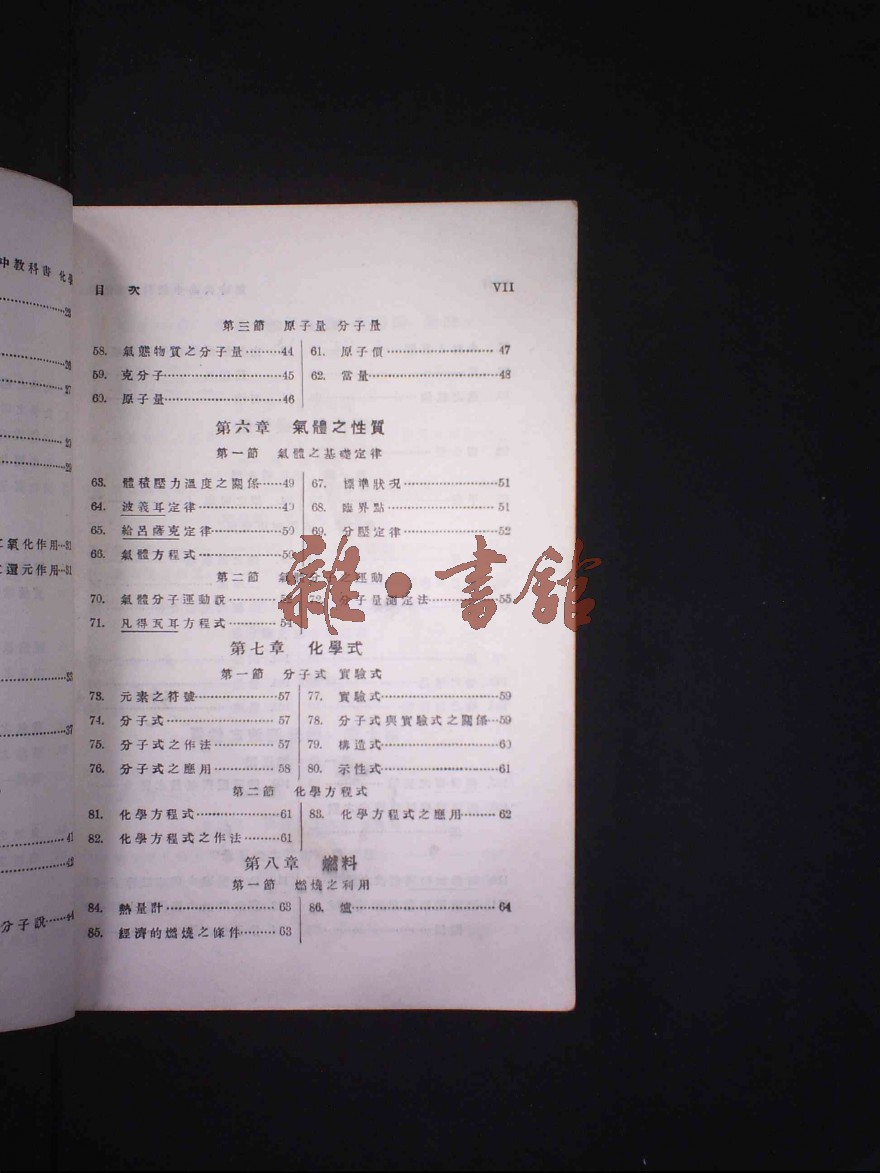 中教科書 化學
23
26
27
29
29
氧化作用…31
還元作用…31
33
37
41
43
分子說……44
目 次 VII
第三節 原子量 分子量
58. 氣態物質之分子量………44
59. 克分子………45
60. 原子量………46
61. 原子價………47
62. 當量………48
第六章 氣體之性質
第一節 氣體之基礎定律
63. 體積壓力溫度之關係……49
64. 波義耳定律………49
65. 給呂薩克定律………50
66. 氣體方程式………50
67. 標準狀况………51
68. 臨界點………51
69. 分壓定律………52
第二節 氣體分子之運動
70. 氣體分子運動說………53
71. 凡得瓦耳方程式………54
72. 分子量測定法………55
第七章 化學式
第一節 分子式 實驗式
73. 元素之符號………57
74. 分子式………57
75. 分子式之作法………57
76. 分子式之應用………58
77. 實驗式………59
78. 分子式與實驗式之關係…59
79. 構造式………60
80. 示性式………61
第二節 化學方程式
81. 化學方程式………61
82. 化學方程式之作法………61
83. 化學方程式之應用………62
第八章 燃料
第一節 燃燒之利用
84. 熱量計………63
85. 經濟的燃燒之條件………63
86. 爐………64
雜·書館